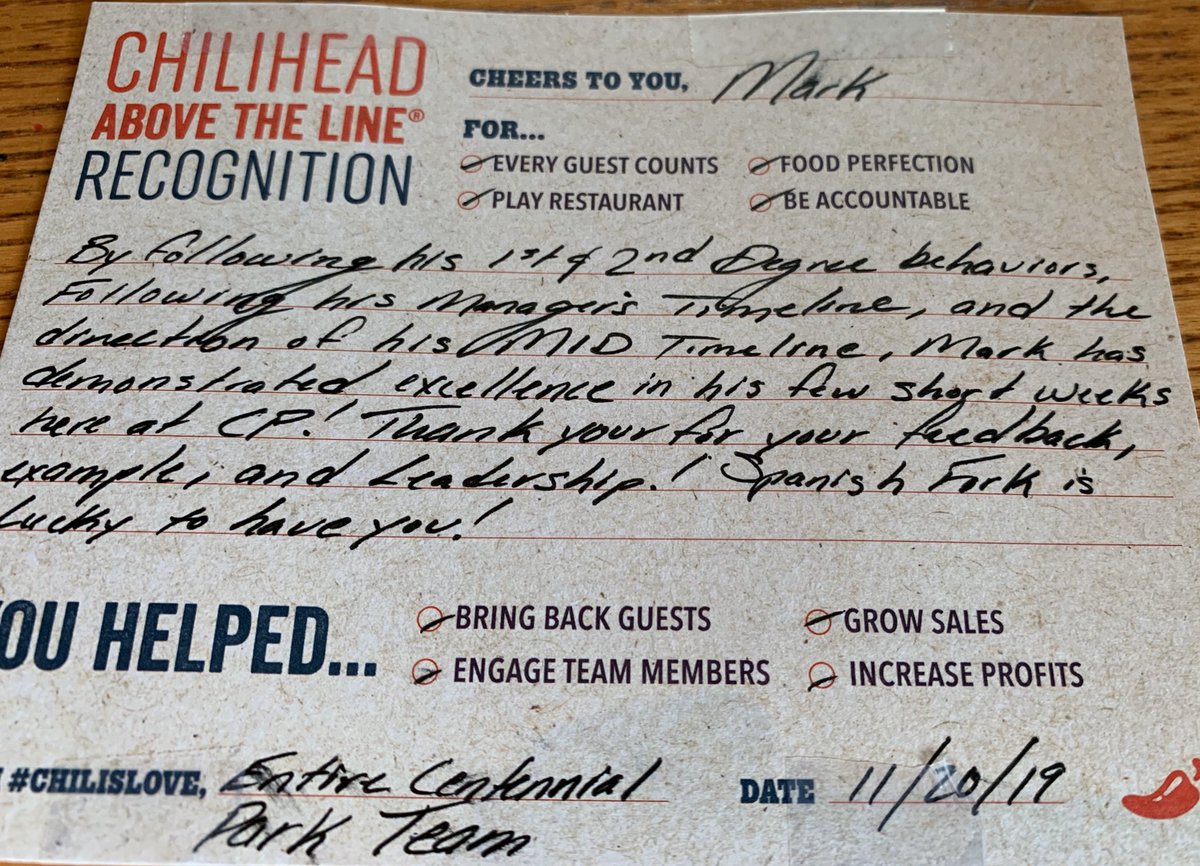 CHILIHEAD
ABOVE THE LINE®
RECOGNITION
CHEERS TO YOU, Mark
FOR...
EVERY GUEST COUNTS
FOOD PERFECTION
PLAY RESTAURANT
BE ACCOUNTABLE
By following his 1st & 2nd Degree behaviors,
Following his Manager's Timeline, and the
direction of his MID Timeline, Mark has
demonstrated excellence in his few short weeks
here at CP! Thank your for your feedback,
example, and Leadership! Spanish Fork is
Lucky to have you!
OU HELPED...
BRING BACK GUESTS
GROW SALES
ENGAGE TEAM MEMBERS
INCREASE PROFITS
#CHILISLOVE, Entire Centennial
Park Team
DATE 11/20/19